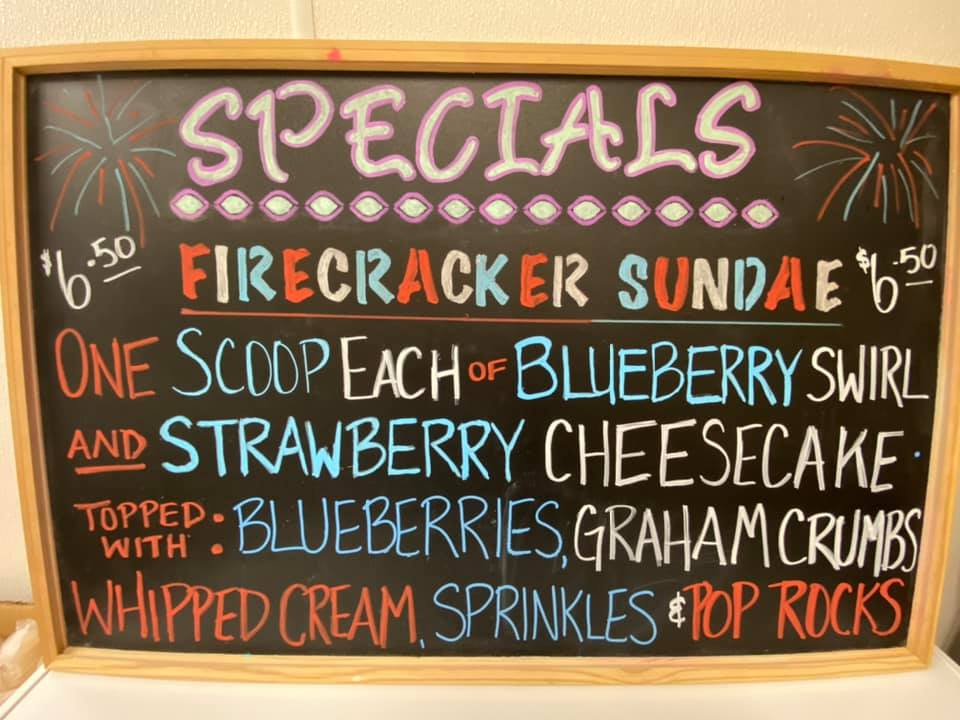 SPECIALS
$6.50 FIRECRACKER SUNDAE $6.50
ONE SCOOP EACH OF BLUEBERRY SWIRL
AND STRAWBERRY CHEESECAKE.
TOPPED WITH: BLUEBERRIES, GRAHAM CRUMBS
WHIPPED CREAM, SPRINKLES & POP ROCKS